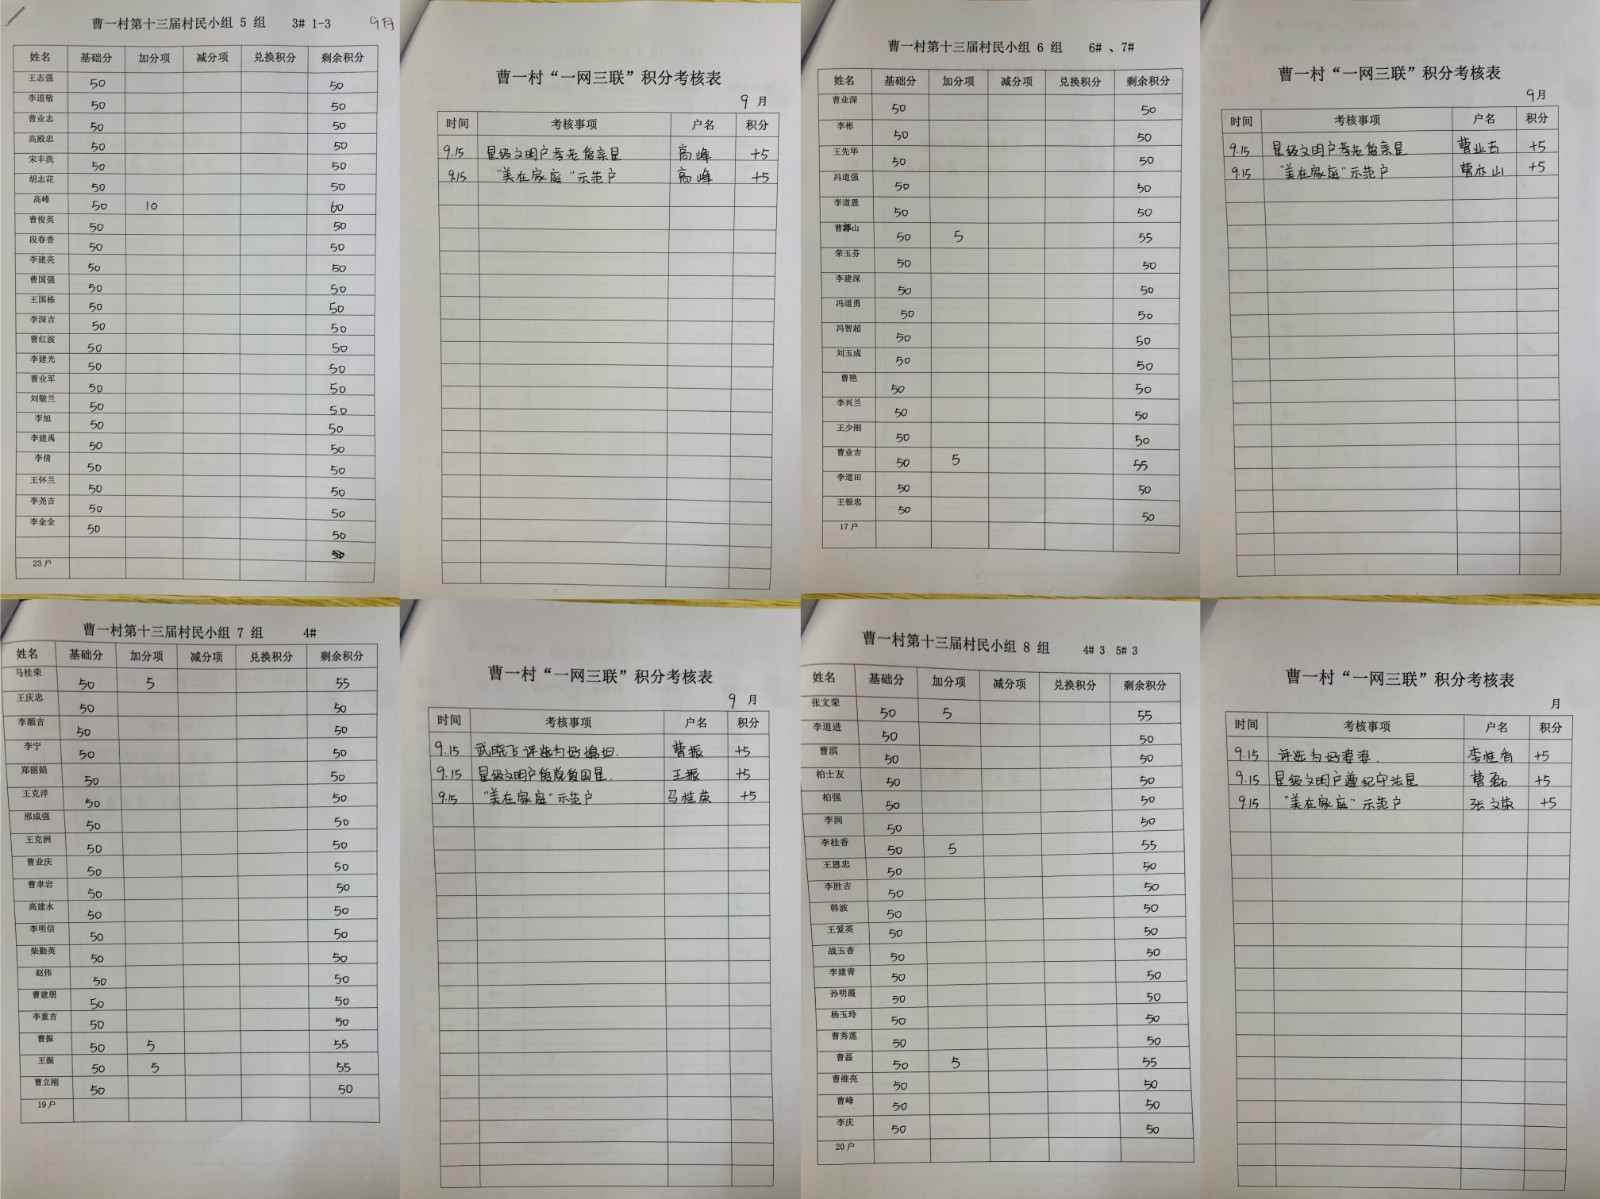 曹一村第十三届村民小组 5 组 3# 1-3 9月
姓名 基础分 加分项 减分项 兑换积分 剩余积分
王志强 50 50
李道敬 50 50
曹业志 50 50
高殿忠 50 50
宋丰洗 50 50
胡志花 50 50
高峰 50 10 60
曹俊英 50 50
段春香 50 50
李建亮 50 50
曹国强 50 50
王国栋 50 50
李深吉 50 50
曹红波 50 50
李建光 50 50
曹业军 50 50
刘敬兰 50 50
李旭 50 50
李建禹 50 50
李倩 50 50
王怀兰 50 50
李尧吉 50 50
李金全 50 50
23户
曹一村“一网三联”积分考核表
9 月
时间 考核事项 户名 积分
9.15 星级文明户孝老爱亲星 高峰 +5
9.15 “美在家庭”示范户 高峰 +5
曹一村第十三届村民小组 6 组 6# 、7#
姓名 基础分 加分项 减分项 兑换积分 剩余积分
曹业深 50 50
李彬 50 50
王先华 50 50
冯道强 50 50
李道恩 50 50
曹山 50 5 55
荣玉芬 50 50
李建深 50 50
冯道勇 50 50
冯智超 50 50
刘玉成 50 50
曹艳 50 50
李兴兰 50 50
王少刚 50 50
曹业吉 50 5 55
李道田 50 50
王银忠 50 50
17户
曹一村“一网三联”积分考核表
9月
时间 考核事项 户名 积分
9.15 星级文明户孝老爱亲星 曹业吉 +5
9.15 “美在家庭”示范户 曹亦山 +5
曹一村第十三届村民小组 7 组 4#
姓名 基础分 加分项 减分项 兑换积分 剩余积分
马桂荣 50 5 55
王庆忠 50 50
李顺吉 50 50
李宁 50 50
郑丽娟 50 50
王克洋 50 50
邢成强 50 50
王克洲 50 50
曹业庆 50 50
曹聿岩 50 50
高建水 50 50
李明信 50 50
荣勤英 50 50
赵伟 50 50
曹建朋 50 50
李重吉 50 50
曹振 50 5 55
王振 50 5 55
曹立刚 50 50
19户
曹一村“一网三联”积分考核表
9 月
时间 考核事项 户名 积分
9.15 武晓飞评选为好媳妇. 曹振 +5
9.15 星级文明户爱党爱国星. 王振 +5
9.15 “美在家庭”示范户 马桂荣 +5
曹一村第十三届村民小组 8 组 4# 3 5# 3
姓名 基础分 加分项 减分项 兑换积分 剩余积分
张文荣 50 5 55
李道进 50 50
曹滨 50 50
柏士友 50 50
柏强 50 50
李润 50 50
李桂香 50 5 55
王恩忠 50 50
李胜吉 50 50
韩波 50 50
王爱英 50 50
战玉香 50 50
李建青 50 50
孙明霞 50 50
杨玉玲 50 50
曹秀莲 50 50
曹磊 50 5 55
曹维亮 50 50
曹峰 50 50
李庆 50 50
20户
曹一村“一网三联”积分考核表
月
时间 考核事项 户名 积分
9.15 评选为好婆婆. 李桂香 +5
9.15 星级文明户遵纪守法星 曹磊 +5
9.15 “美在家庭”示范户 张文荣 +5